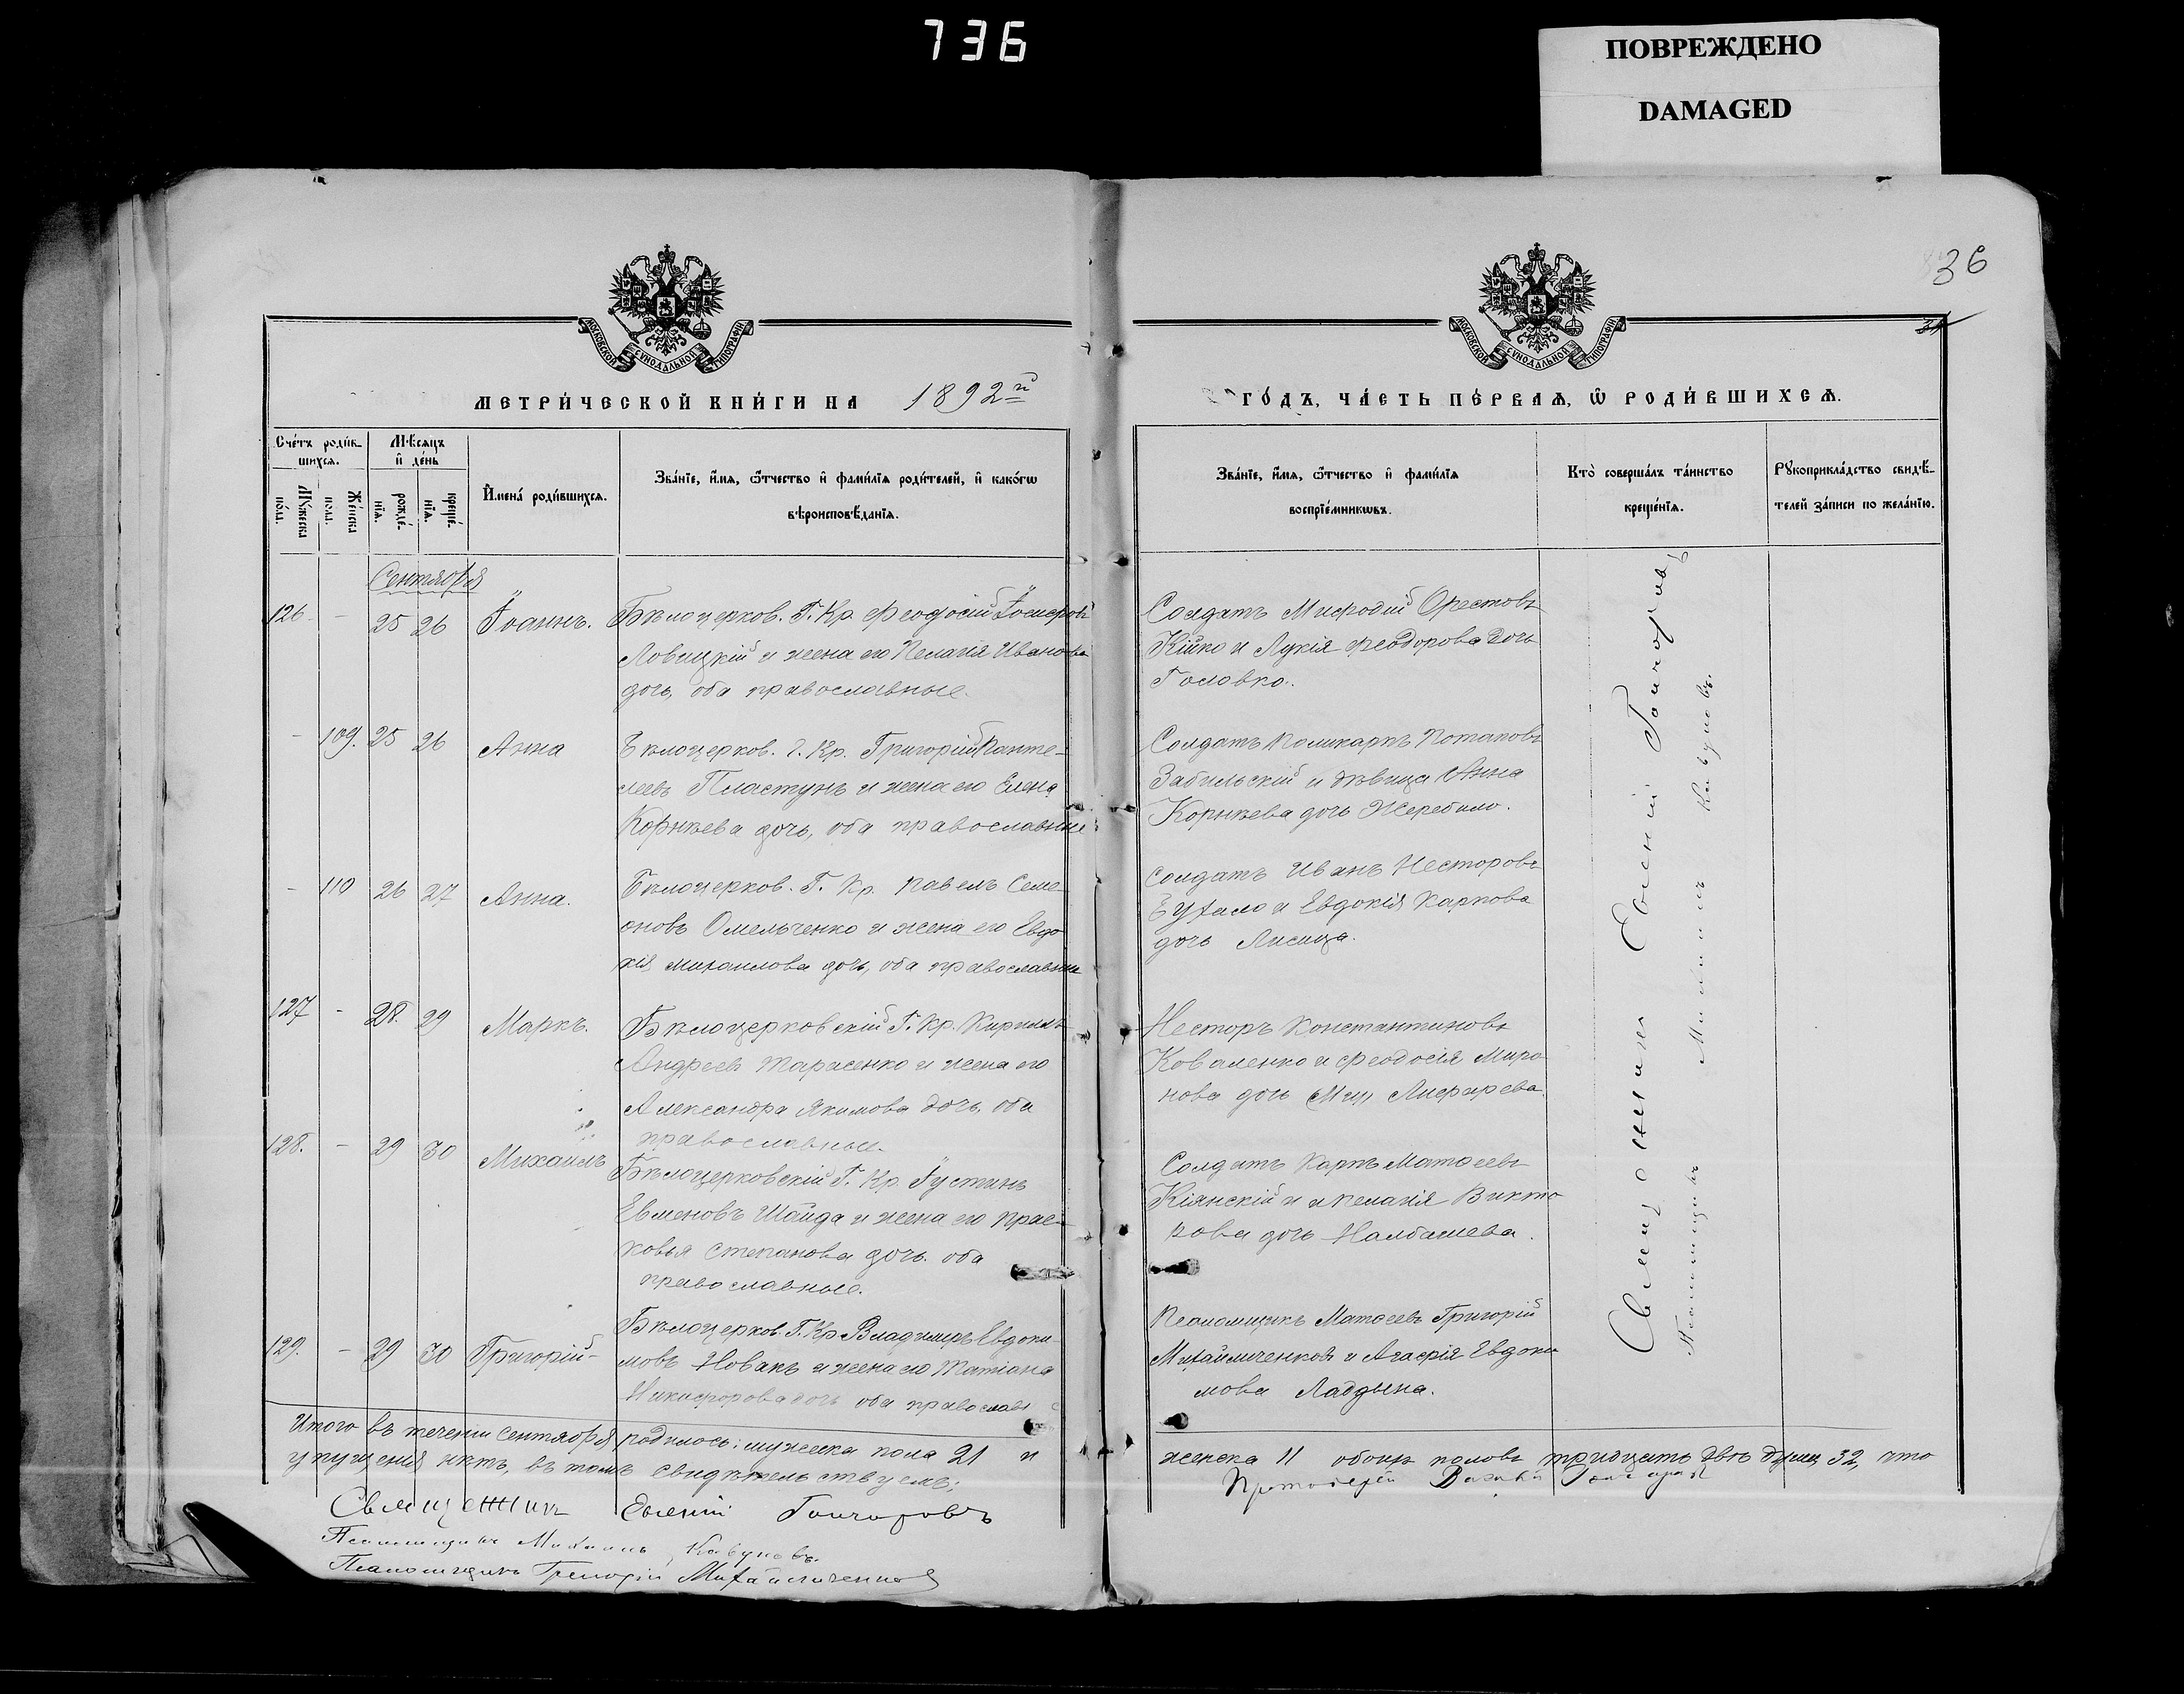 736
ПОВРЕЖДЕНО
DAMAGED
36
МОСКОВСКОЙ СѴНОДАЛЬНОЙ ТИПОГРАФІИ
МОСКОВСКОЙ СѴНОДАЛЬНОЙ ТИПОГРАФІИ
МЕТРИ́ЧЕСКОЙ КНИ́ГИ НА 1892й
ГО́ДЪ, ЧА́СТЬ ПЕ́РВАѦ, Ѽ РОДИ́ВШИХСѦ.
Сче́тъ роди́в-
шихсѧ.
Мѣ́сѧцъ
и҆ де́нь
Мꙋ́жеска
по́ла.
Же́нска
пола.
рожде́-
нїѧ.
креще́-
нїѧ.
И҆мена́ роди́вшихсѧ.
Зва́нїе, и҆́мѧ, ѻ҆́тчество и҆ фами́лїѧ роди́телей, и҆ како́гѡ
вѣроисповѣ́данїѧ.
Зва́нїе, и҆́мѧ, ѻ҆́тчество и҆ фами́лїѧ
воспрїе́мникѡвъ.
Кто̀ соверша́лъ та́инство
креще́нїѧ.
Рꙋкоприкла́дство свидѣ́-
телей за́писи по жела́нїю.
Сентября
126. - 25 26 Іоаннъ. Бѣлоцерков. Г. Кр. Феодосій Іосифовъ
Ловицкій и жена его Пелагія Иванова
дочь, оба православные.
Солдатъ Мифодій Орестовъ
Кійко и Лукія Феодорова дочь
Головко.
- 109. 25 26 Анна Бѣлоцерков. Г. Кр. Григорій Панте-
леевъ Пластунъ и жена его Елена
Корнѣева дочь, оба православные
Солдатъ Поликарпъ Потаповъ
Забильскій и дѣвица Анна
Корнѣева дочь Жеребило.
- 110 26 27 Анна. Бѣлоцерков. Г. Кр. Павелъ Семе-
оновъ Омельченко и жена его Евдо
кія Михаилова дочь, оба православные
Солдатъ Иванъ Несторовъ
и Евдокія Карпова
дочь Лисица.
127 - 28. 29 Маркъ. Бѣлоцерковскій Г. Кр. Кириллъ
Андреевъ Тарасенко и жена его
Александра Якимова дочь. оба
православные.
Несторъ Константиновъ
Коваленко и Феодосія Миро
нова дочь Лифарева.
128. - 29 30 Михаилъ Бѣлоцерковскій Г. Кр. Іустинъ
Евменовъ Шайда и жена его Прас-
ковья Степанова дочь. оба
православные.
Солдатъ Карпъ Матоеевъ
Кіянскій и Пелагія Викто
рова дочь Налбатева.
129. - 29 30 Григорій- Бѣлоцерков. Г. Кр Владимиръ Евдоки-
мовъ Новакъ и жена его Татіана
Никифорова дочь оба православ
Псаломщикъ Матоеевъ Григорій
Михайличенковъ и Агафія Евдоки
мова Ладдына.
Священникъ Евгеній Гончаровъ
Псаломщикъ Михаилъ Кавуновъ.
Итого въ теченіи сентября родилось: мужеска пола 21 и
женска 11 обоихъ половъ тридцать двѣ души 32, что
упущенія нѣтъ, въ томъ свидѣтельствуемъ:
Протоіерей Гончаровъ
Священникъ Евгеній Гончаровъ
Псаломщикъ Михаилъ Кавуновъ.
Псаломщикъ Григорій Михайличенковъ